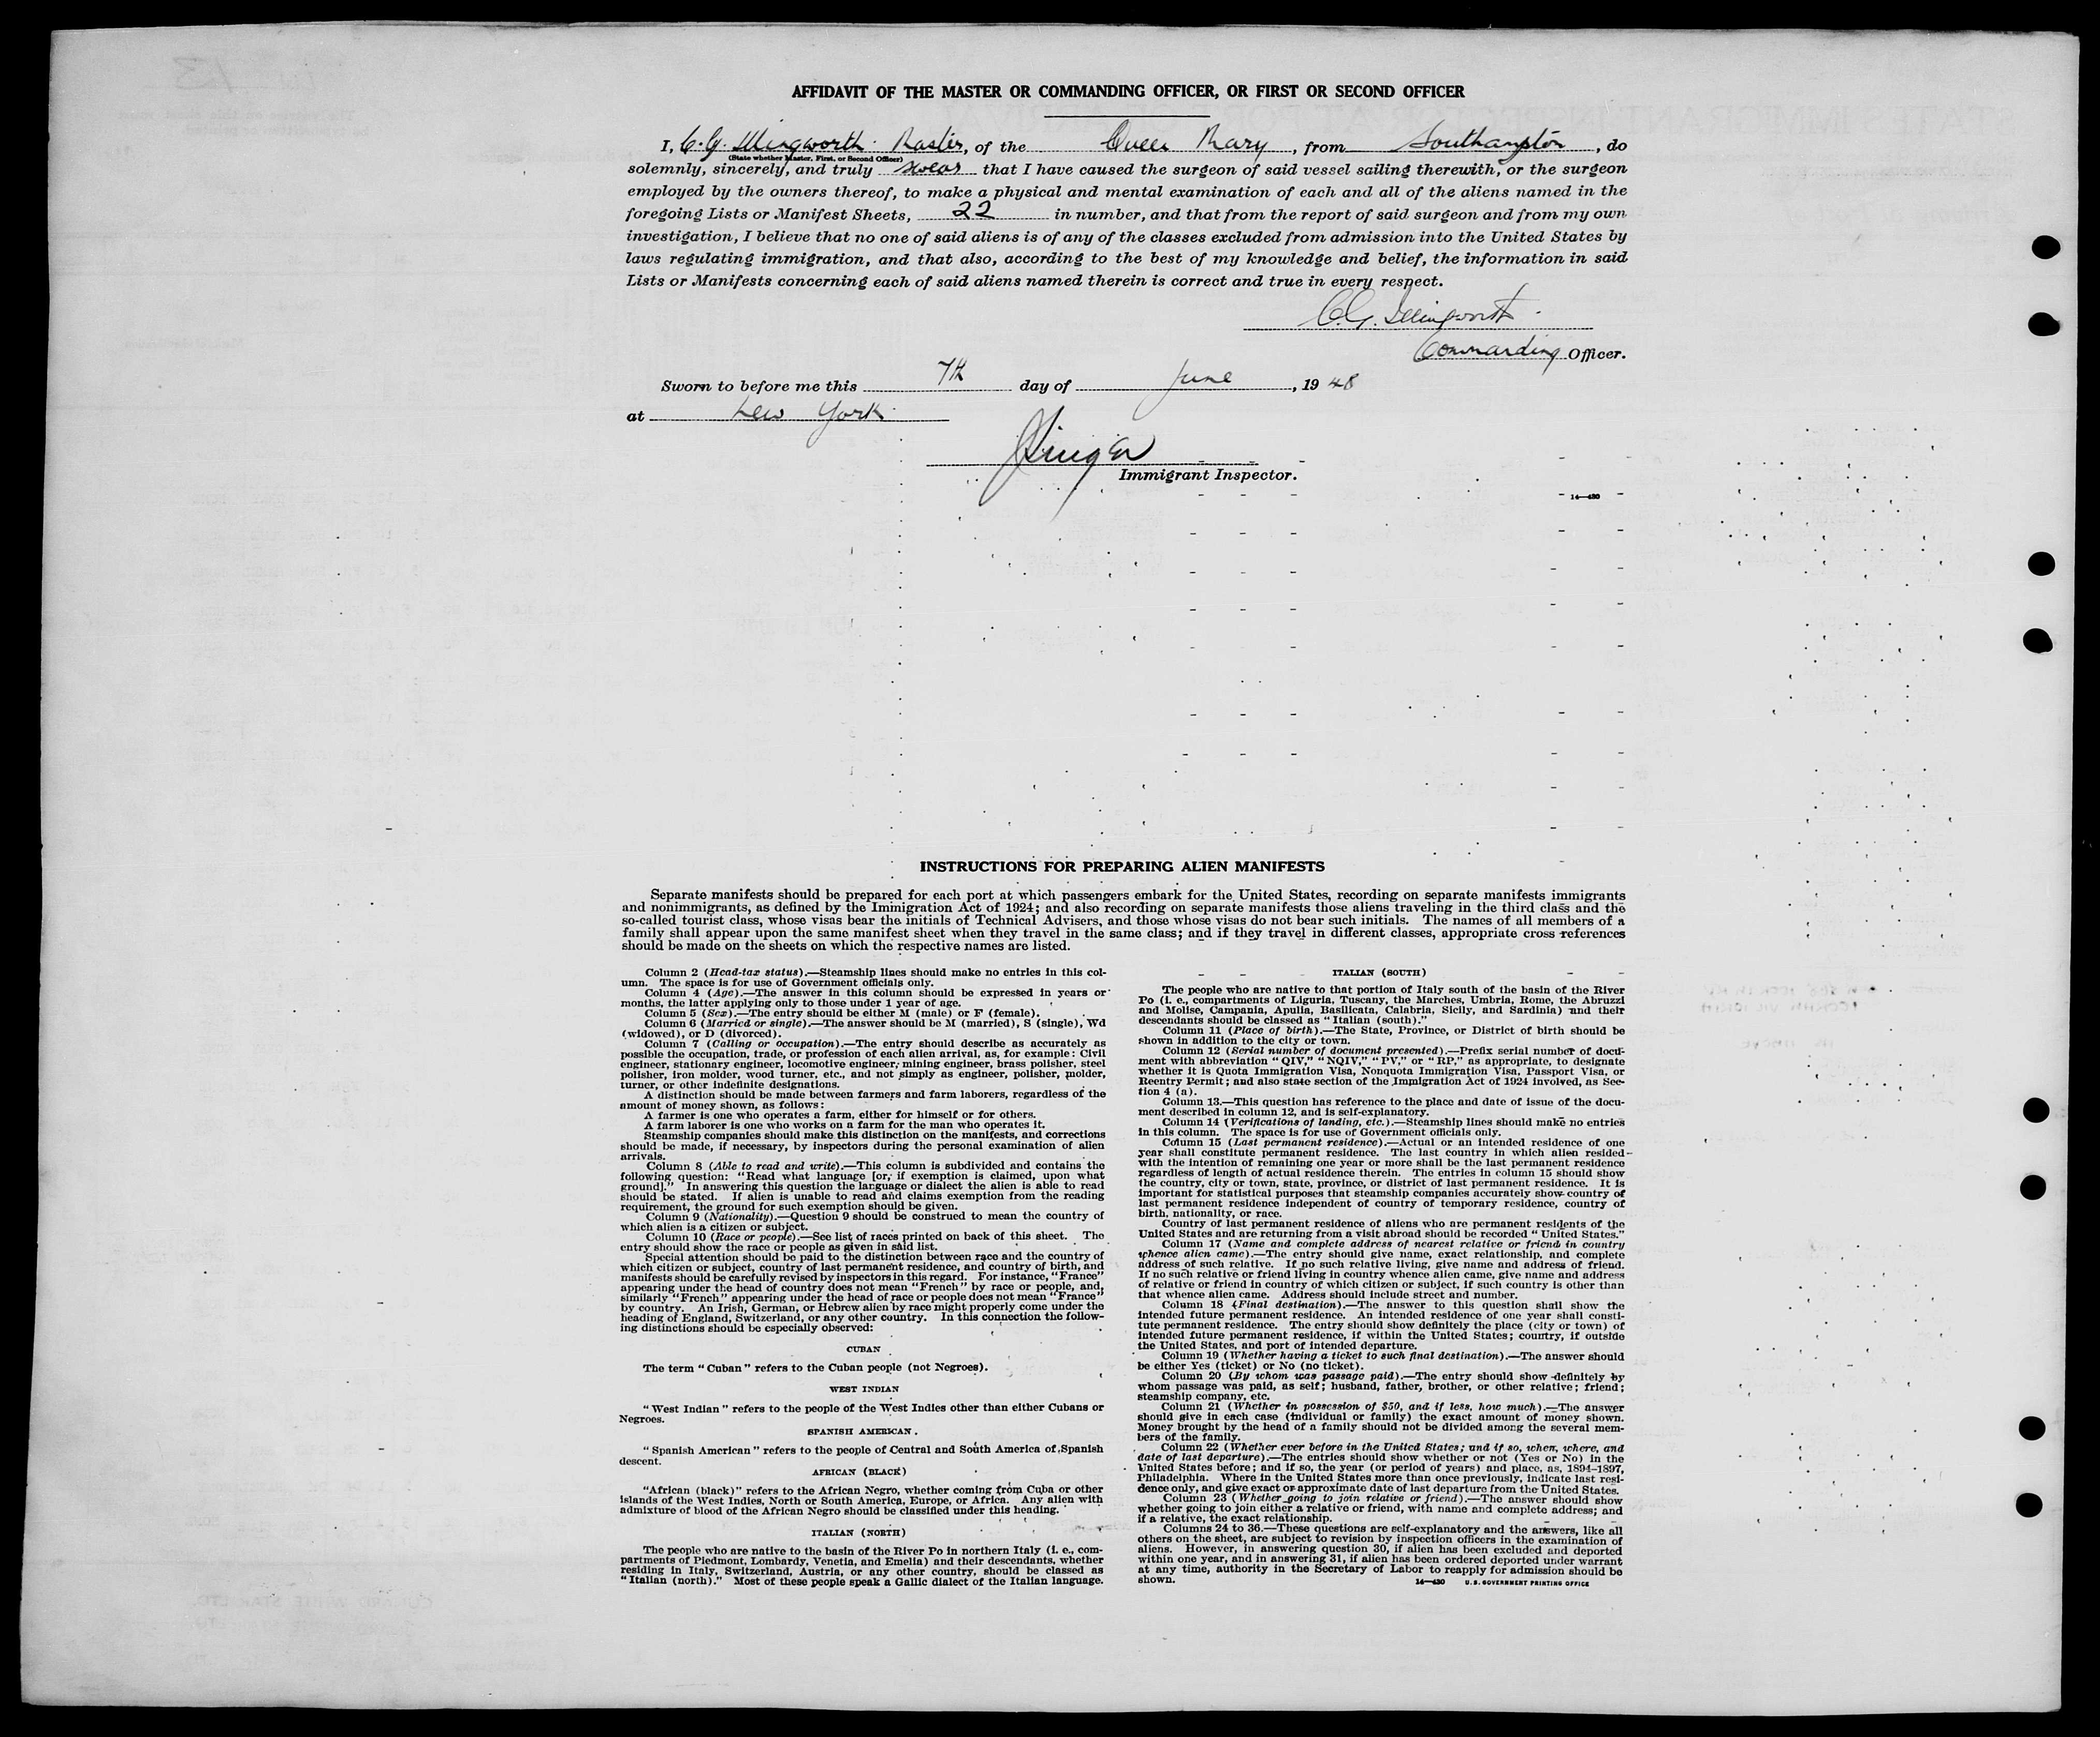 AFFIDAVIT OF THE MASTER OR COMMANDING OFFICER, OR FIRST OR SECOND OFFICER
I, C. G. Illingworth. Master, of the Queen Mary, from Southampton, do
(State whether Master, First, or Second Officer)
solemnly, sincerely, and truly swear that I have caused the surgeon of said vessel sailing therewith, or the surgeon
employed by the owners thereof, to make a physical and mental examination of each and all of the aliens named in the
foregoing Lists or Manifest Sheets, 22 in number, and that from the report of said surgeon and from my own
investigation, I believe that no one of said aliens is of any of the classes excluded from admission into the United States by
laws regulating immigration, and that also, according to the best of my knowledge and belief, the information in said
Lists or Manifests concerning each of said aliens named therein is correct and true in every respect.
C.G. Illingworth.
Commanding Officer.
Sworn to before me this 7th day of June, 1948
at New York.
Immigrant Inspector.
14—430
INSTRUCTIONS FOR PREPARING ALIEN MANIFESTS
Separate manifests should be prepared for each port at which passengers embark for the United States, recording on separate manifests immigrants
and nonimmigrants, as defined by the Immigration Act of 1924; and also recording on separate manifests those aliens traveling in the third class and the
so-called tourist class, whose visas bear the initials of Technical Advisers, and those whose visas do not bear such initials. The names of all members of a
family shall appear upon the same manifest sheet when they travel in the same class; and if they travel in different classes, appropriate cross references
should be made on the sheets on which the respective names are listed.
Column 2 (Head-tax status).—Steamship lines should make no entries in this col-
umn. The space is for use of Government officials only.
Column 4 (Age).—The answer in this column should be expressed in years or
months, the latter applying only to those under 1 year of age.
Column 5 (Sex).—The entry should be either M (male) or F (female).
Column 6 (Married or single).—The answer should be M (married), S (single), Wd
(widowed), or D (divorced).
Column 7 (Calling or occupation).—The entry should describe as accurately as
possible the occupation, trade, or profession of each alien arrival, as, for example: Civil
engineer, stationary engineer, locomotive engineer, mining engineer, brass polisher, steel
polisher, iron molder, wood turner, etc., and not simply as engineer, polisher, molder,
turner, or other indefinite designations.
A distinction should be made between farmers and farm laborers, regardless of the
amount of money shown, as follows:
A farmer is one who operates a farm, either for himself or for others.
A farm laborer is one who works on a farm for the man who operates it.
Steamship companies should make this distinction on the manifests, and corrections
should be made, if necessary, by inspectors during the personal examination of alien
arrivals.
Column 8 (Able to read and write).—This column is subdivided and contains the
following question: "Read what language [or, if exemption is claimed, upon what
ground]." In answering this question the language or dialect the alien is able to read
should be stated. If alien is unable to read and claims exemption from the reading
requirement, the ground for such exemption should be given.
Column 9 (Nationality).—Question 9 should be construed to mean the country of
which alien is a citizen or subject.
Column 10 (Race or people).—See list of races printed on back of this sheet. The
entry should show the race or people as given in said list.
Special attention should be paid to the distinction between race and the country of
which citizen or subject, country of last permanent residence, and country of birth, and
manifests should be carefully revised by inspectors in this regard. For instance, "France"
appearing under the head of country does not mean "French" by race or people, and,
similarly "French" appearing under the head of race or people does not mean "France"
by country. An Irish, German, or Hebrew alien by race might properly come under the
heading of England, Switzerland, or any other country. In this connection the follow-
ing distinctions should be especially observed:
CUBAN
The term "Cuban" refers to the Cuban people (not Negroes).
WEST INDIAN
"West Indian" refers to the people of the West Indies other than either Cubans or
Negroes.
SPANISH AMERICAN.
"Spanish American" refers to the people of Central and South America of Spanish
descent.
AFRICAN (BLACK)
"African (black)" refers to the African Negro, whether coming from Cuba or other
islands of the West Indies, North or South America, Europe, or Africa. Any alien with
admixture of blood of the African Negro should be classified under this heading.
ITALIAN (NORTH)
The people who are native to the basin of the River Po in northern Italy (i. e., com-
partments of Piedmont, Lombardy, Venetia, and Emelia) and their descendants, whether
residing in Italy, Switzerland, Austria, or any other country, should be classed as
"Italian (north)." Most of these people speak a Gallic dialect of the Italian language.
ITALIAN (SOUTH)
The people who are native to that portion of Italy south of the basin of the River
Po (i. e., compartments of Liguria, Tuscany, the Marches, Umbria, Rome, the Abruzzi
and Molise, Campania, Apulia, Basilicata, Calabria, Sicily, and Sardinia) and their
descendants should be classed as "Italian (south)."
Column 11 (Place of birth).—The State, Province, or District of birth should be
shown in addition to the city or town.
Column 12 (Serial number of document presented).—Prefix serial number of docu-
ment with abbreviation "QIV," "NQIV," "PV," or "RP," as appropriate, to designate
whether it is Quota Immigration Visa, Nonquota Immigration Visa, Passport Visa, or
Reentry Permit; and also state section of the Immigration Act of 1924 involved, as Sec-
tion 4 (a).
Column 13.—This question has reference to the place and date of issue of the docu-
ment described in column 12, and is self-explanatory.
Column 14 (Verifications of landing, etc.).—Steamship lines should make no entries
in this column. The space is for use of Government officials only.
Column 15 (Last permanent residence).—Actual or an intended residence of one
year shall constitute permanent residence. The last country in which alien resided
with the intention of remaining one year or more shall be the last permanent residence
regardless of length of actual residence therein. The entries in column 15 should show
the country, city or town, state, province, or district of last permanent residence. It is
important for statistical purposes that steamship companies accurately show country of
last permanent residence independent of country of temporary residence, country of
birth, nationality, or race.
Country of last permanent residence of aliens who are permanent residents of the
United States and are returning from a visit abroad should be recorded "United States."
Column 17 (Name and complete address of nearest relative or friend in country
whence alien came).—The entry should give name, exact relationship, and complete
address of such relative. If no such relative living, give name and address of friend.
If no such relative or friend living in country whence alien came, give name and address
of relative or friend in country of which citizen or subject, if such country is other than
that whence alien came. Address should include street and number.
Column 18 (Final destination).—The answer to this question shall show the
intended future permanent residence. An intended residence of one year shall consti-
tute permanent residence. The entry should show definitely the place (city or town) of
intended future permanent residence, if within the United States; country, if outside
the United States, and port of intended departure.
Column 19 (Whether having a ticket to such final destination).—The answer should
be either Yes (ticket) or No (no ticket).
Column 20 (By whom was passage paid).—The entry should show definitely by
whom passage was paid, as self; husband, father, brother, or other relative; friend;
steamship company, etc.
Column 21 (Whether in possession of $50, and if less, how much).—The answer
should give in each case (individual or family) the exact amount of money shown.
Money brought by the head of a family should not be divided among the several mem-
bers of the family.
Column 22 (Whether ever before in the United States; and if so, when, where, and
date of last departure).—The entries should show whether or not (Yes or No) in the
United States before; and if so, the year (or period of years) and place, as, 1894–1897,
Philadelphia. Where in the United States more than once previously, indicate last resi-
dence only, and give exact or approximate date of last departure from the United States.
Column 23 (Whether going to join relative or friend).—The answer should show
whether going to join either a relative or friend, with name and complete address; and
if a relative, the exact relationship.
Columns 24 to 36.—These questions are self-explanatory and the answers, like all
others on the sheet, are subject to revision by inspection officers in the examination of
aliens. However, in answering question 30, if alien has been excluded and deported
within one year, and in answering 31, if alien has been ordered deported under warrant
at any time, authority in the Secretary of Labor to reapply for admission should be
shown.
14—430 U.S. GOVERNMENT PRINTING OFFICE